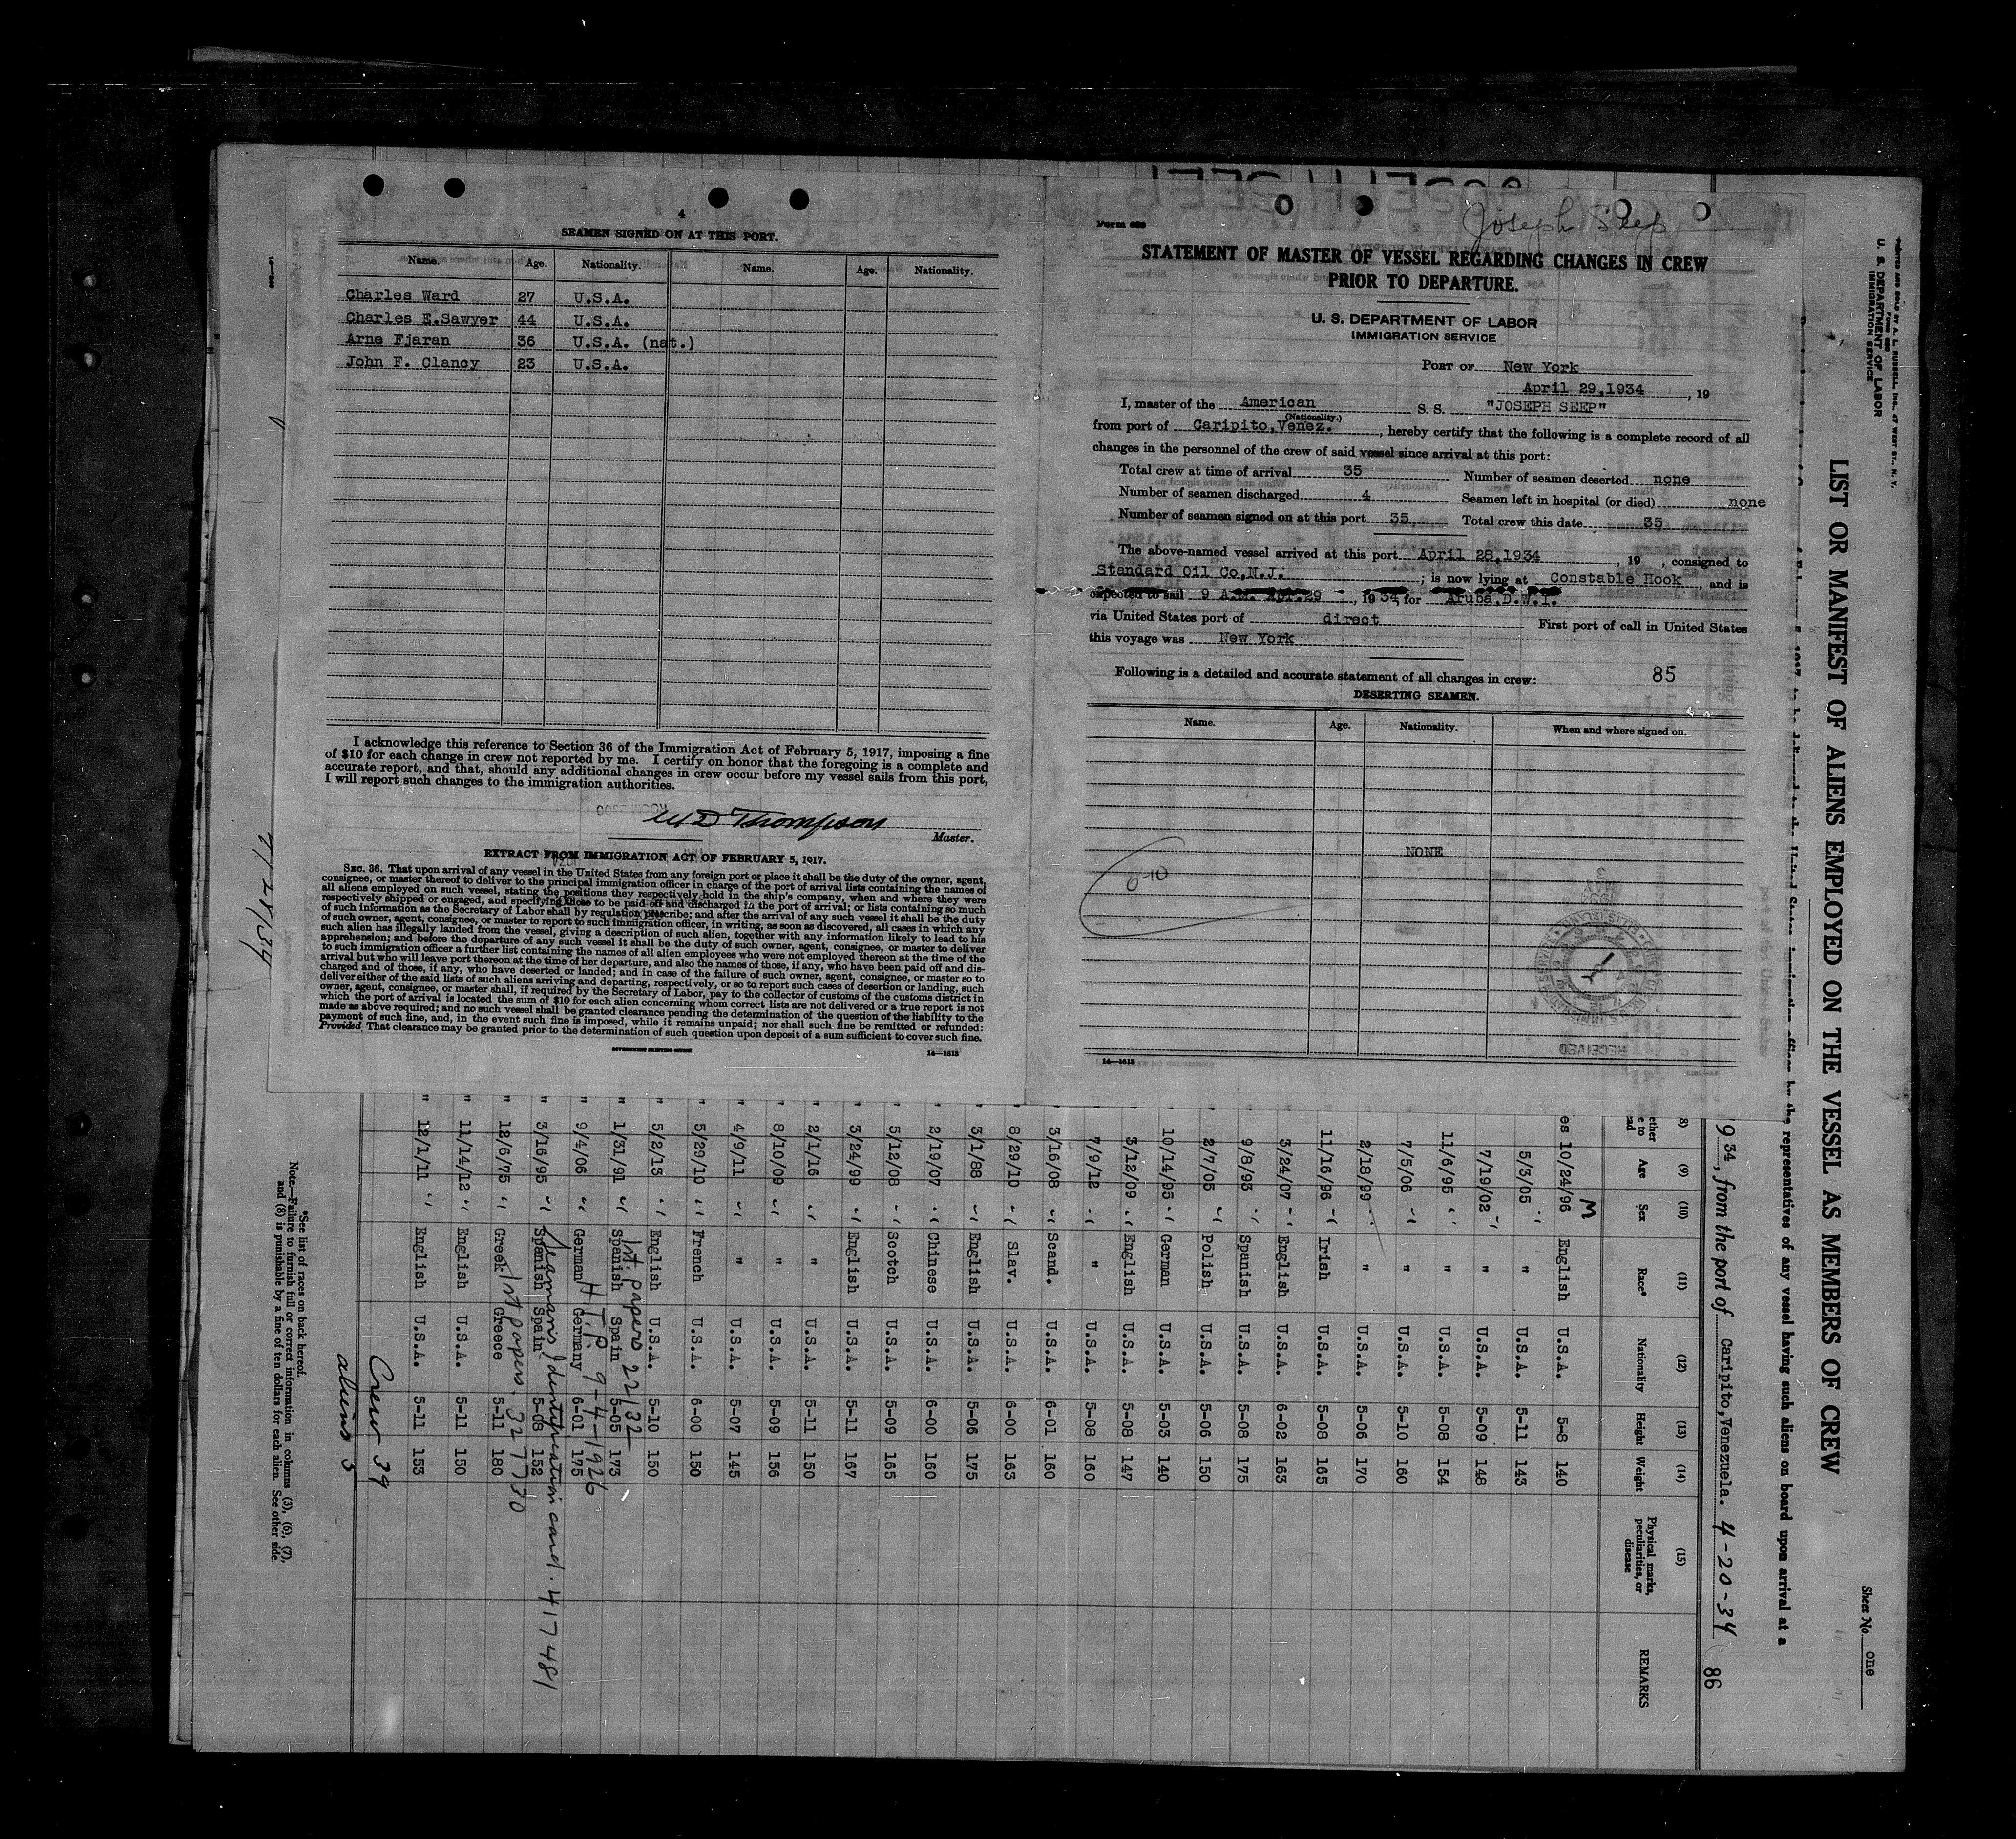 4
SEAMEN SIGNED ON AT THIS PORT.
Name. Age. Nationality. Name. Age. Nationality.
Charles Ward 27 U.S.A.
Charles E.Sawyer 44 U.S.A.
Arne Fjaran 36 U.S.A. (nat.)
John F. Clancy 23 U.S.A.
I acknowledge this reference to Section 36 of the Immigration Act of February 5, 1917, imposing a fine
of $10 for each change in crew not reported by me. I certify on honor that the foregoing is a complete and
accurate report, and that, should any additional changes in crew occur before my vessel sails from this port,
I will report such changes to the immigration authorities.
Thompson
Master.
EXTRACT FROM IMMIGRATION ACT OF FEBRUARY 5, 1917.
SEC. 36. That upon arrival of any vessel in the United States from any foreign port or place it shall be the duty of the owner, agent,
consignee, or master thereof to deliver to the principal immigration officer in charge of the port of arrival lists containing the names of
all aliens employed on such vessel, stating the positions they respectively hold in the ship's company, when and where they were
respectively shipped or engaged, and specifying those to be paid off and discharged in the port of arrival; or lists containing so much
of such information as the Secretary of Labor shall by regulation prescribe; and after the arrival of any such vessel it shall be the duty
of such owner, agent, consignee, or master to report to such immigration officer, in writing, as soon as discovered, all cases in which any
such alien has illegally landed from the vessel, giving a description of such alien, together with any information likely to lead to his
apprehension; and before the departure of any such vessel it shall be the duty of such owner, agent, consignee, or master to deliver
to such immigration officer a further list containing the names of all alien employees who were not employed thereon at the time of the
arrival but who will leave port thereon at the time of her departure, and also the names of those, if any, who have been paid off and dis-
charged and of those, if any, who have deserted or landed; and in case of the failure of such owner, agent, consignee, or master so to
deliver either of the said lists of such aliens arriving and departing, respectively, or so to report such cases of desertion or landing, such
owner, agent, consignee, or master shall, if required by the Secretary of Labor, pay to the collector of customs of the customs district in
which the port of arrival is located the sum of $10 for each alien concerning whom correct lists are not delivered or a true report is not
made as above required; and no such vessel shall be granted clearance pending the determination of the question of the liability to the
payment of such fine, and, in the event such fine is imposed, while it remains unpaid; nor shall such fine be remitted or refunded:
Provided, That clearance may be granted prior to the determination of such question upon deposit of a sum sufficient to cover such fine.
GOVERNMENT PRINTING OFFICE 14—1613
Form 680
Joseph Seep
STATEMENT OF MASTER OF VESSEL REGARDING CHANGES IN CREW
PRIOR TO DEPARTURE.
U. S. DEPARTMENT OF LABOR
IMMIGRATION SERVICE
PORT OF New York
April 29,1934, 19
I, master of the American S. S. "JOSEPH SEEP"
(Nationality.)
from port of Caripito,Venez., hereby certify that the following is a complete record of all
changes in the personnel of the crew of said vessel since arrival at this port:
Total crew at time of arrival 35 Number of seamen deserted none
Number of seamen discharged 4 Seamen left in hospital (or died) none
Number of seamen signed on at this port 35 Total crew this date 35
The above-named vessel arrived at this port April 28,1934, 19 , consigned to
Standard Oil Co,N.J. ; is now lying at Constable Hook and is
expected to sail 9 A.M. Apr.29, 1934, for Aruba,D.W.I.
via United States port of direct First port of call in United States
this voyage was New York
Following is a detailed and accurate statement of all changes in crew: 85
DESERTING SEAMEN.
Name. Age. Nationality. When and where signed on.
NONE
6-10
RECEIVED
14—1613
PRINTED AND SOLD BY A. L. RUSSELL, INC., 47 WEST ST., N. Y.
U. S. DEPARTMENT OF LABOR
IMMIGRATION SERVICE
Sheet No. one
LIST OR MANIFEST OF ALIENS EMPLOYED ON THE VESSEL AS MEMBERS OF CREW
the representatives of any vessel having such aliens on board upon arrival at a
934, from the port of Caripito,Venezuela. 4-20-34 86
(8) (9) (10) (11) (12) (13) (14) (15)
Age Sex Race* Nationality Height Weight Physical marks, peculiarities, or disease REMARKS
es 10/24/96 M English U.S.A. 5-8 140
5/3/05 " " U.S.A. 5-11 143
7/19/02 " " U.S.A. 5-09 148
11/6/95 " " U.S.A. 5-08 154
7/5/06 " " U.S.A. 5-10 160
2/18/99 " " U.S.A. 5-06 170
11/16/96 " Irish U.S.A. 5-08 165
3/24/07 " English U.S.A. 6-02 163
9/8/93 " Spanish U.S.A. 5-08 175
2/7/05 " Polish U.S.A. 5-06 150
10/14/95 " German U.S.A. 5-03 140
3/12/09 " English U.S.A. 5-08 147
7/9/12 " " U.S.A. 5-08 160
" 3/16/08 " Scand. U.S.A. 6-01 160
" 8/29/10 " Slav. U.S.A. 6-00 163
" 3/1/88 " English U.S.A. 5-06 175
" 2/19/07 " Chinese U.S.A. 6-00 160
" 5/12/08 " Scotch U.S.A. 5-09 165
" 3/24/99 " English U.S.A. 5-11 167
" 2/1/16 " " U.S.A. 5-11 150
" 8/10/09 " " U.S.A. 5-09 156
" 4/9/11 " " U.S.A. 5-07 145
" 5/29/10 " French U.S.A. 6-00 150
" 5/2/13 " English U.S.A. 5-10 150
1st. papers 22132
" 1/31/91 " Spanish Spain 5-05 173
H.T.P. 9-4-1926
" 9/4/06 " German Germany 6-01 175
Seamans Identification card. 417481
" 3/16/95 " Spanish Spain 5-08 152
1st papers. 327730
" 12/6/75 " Greek Greece 5-11 180
" 11/14/12 " English U.S.A. 5-11 150
" 12/1/11 " English U.S.A. 5-11 153
Crew 39
aliens 5
*See list of races on back hereof.
Note.—Failure to furnish full or correct information in columns (3), (6), (7),
and (8) is punishable by a fine of ten dollars for each alien. See other side.